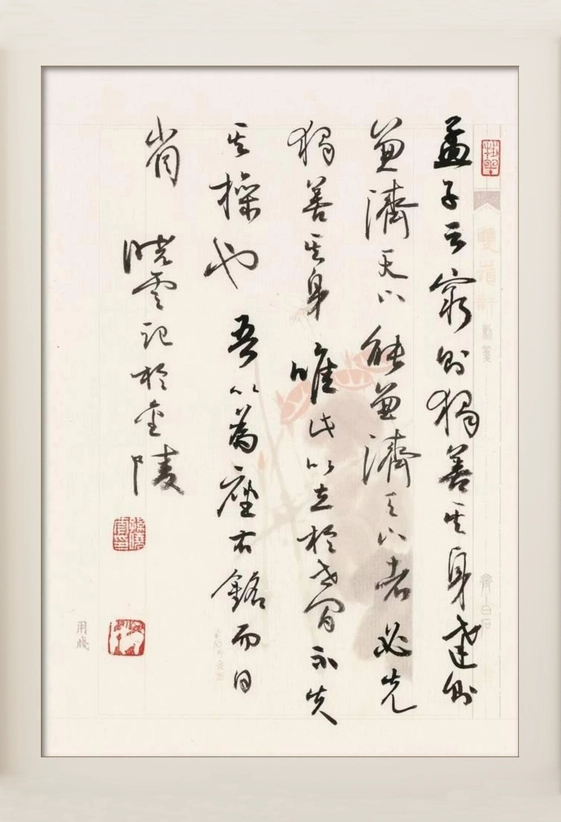 孟子云窮则獨善其身達则
兼濟天下能兼濟天下者必先
獨善其身唯此以立於世間而不失
其操也吾以為座右銘而日
省
曉雲記於金陵
用箋